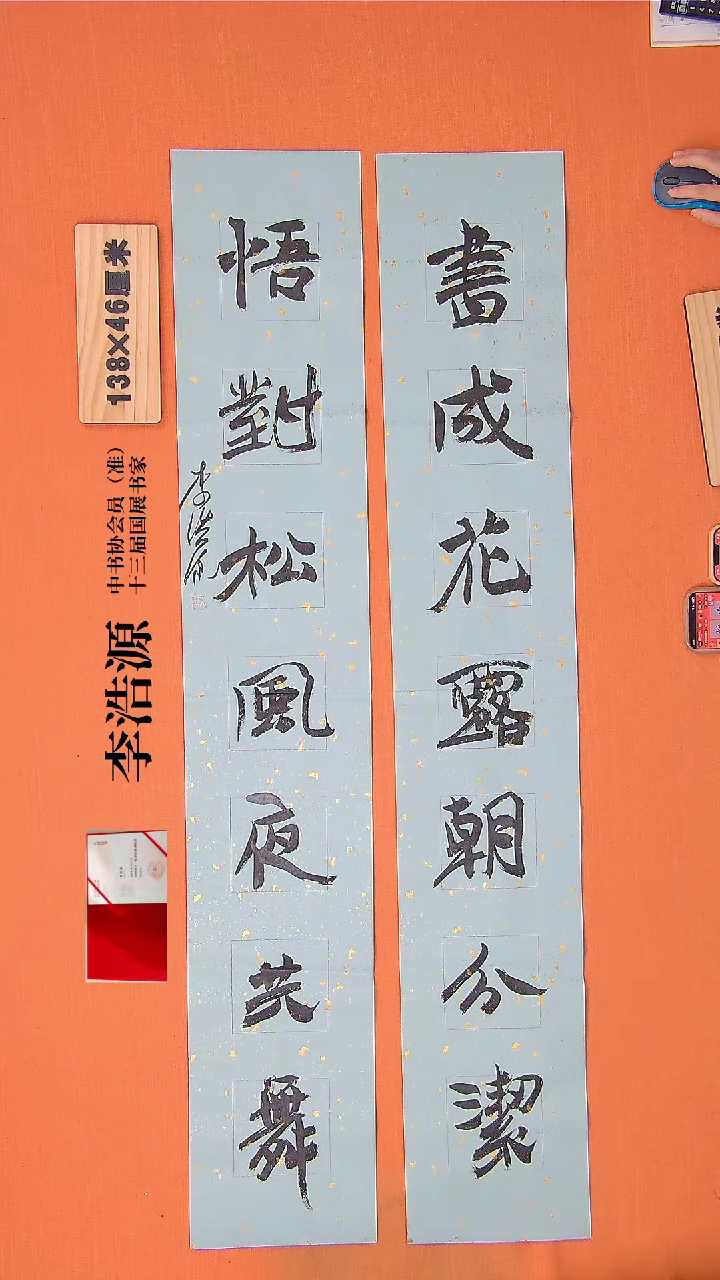 書成花露朝分潔
悟對松風夜共舞
李浩源
138×46厘米
中书协会员（准）
十三届国展书家
李浩源